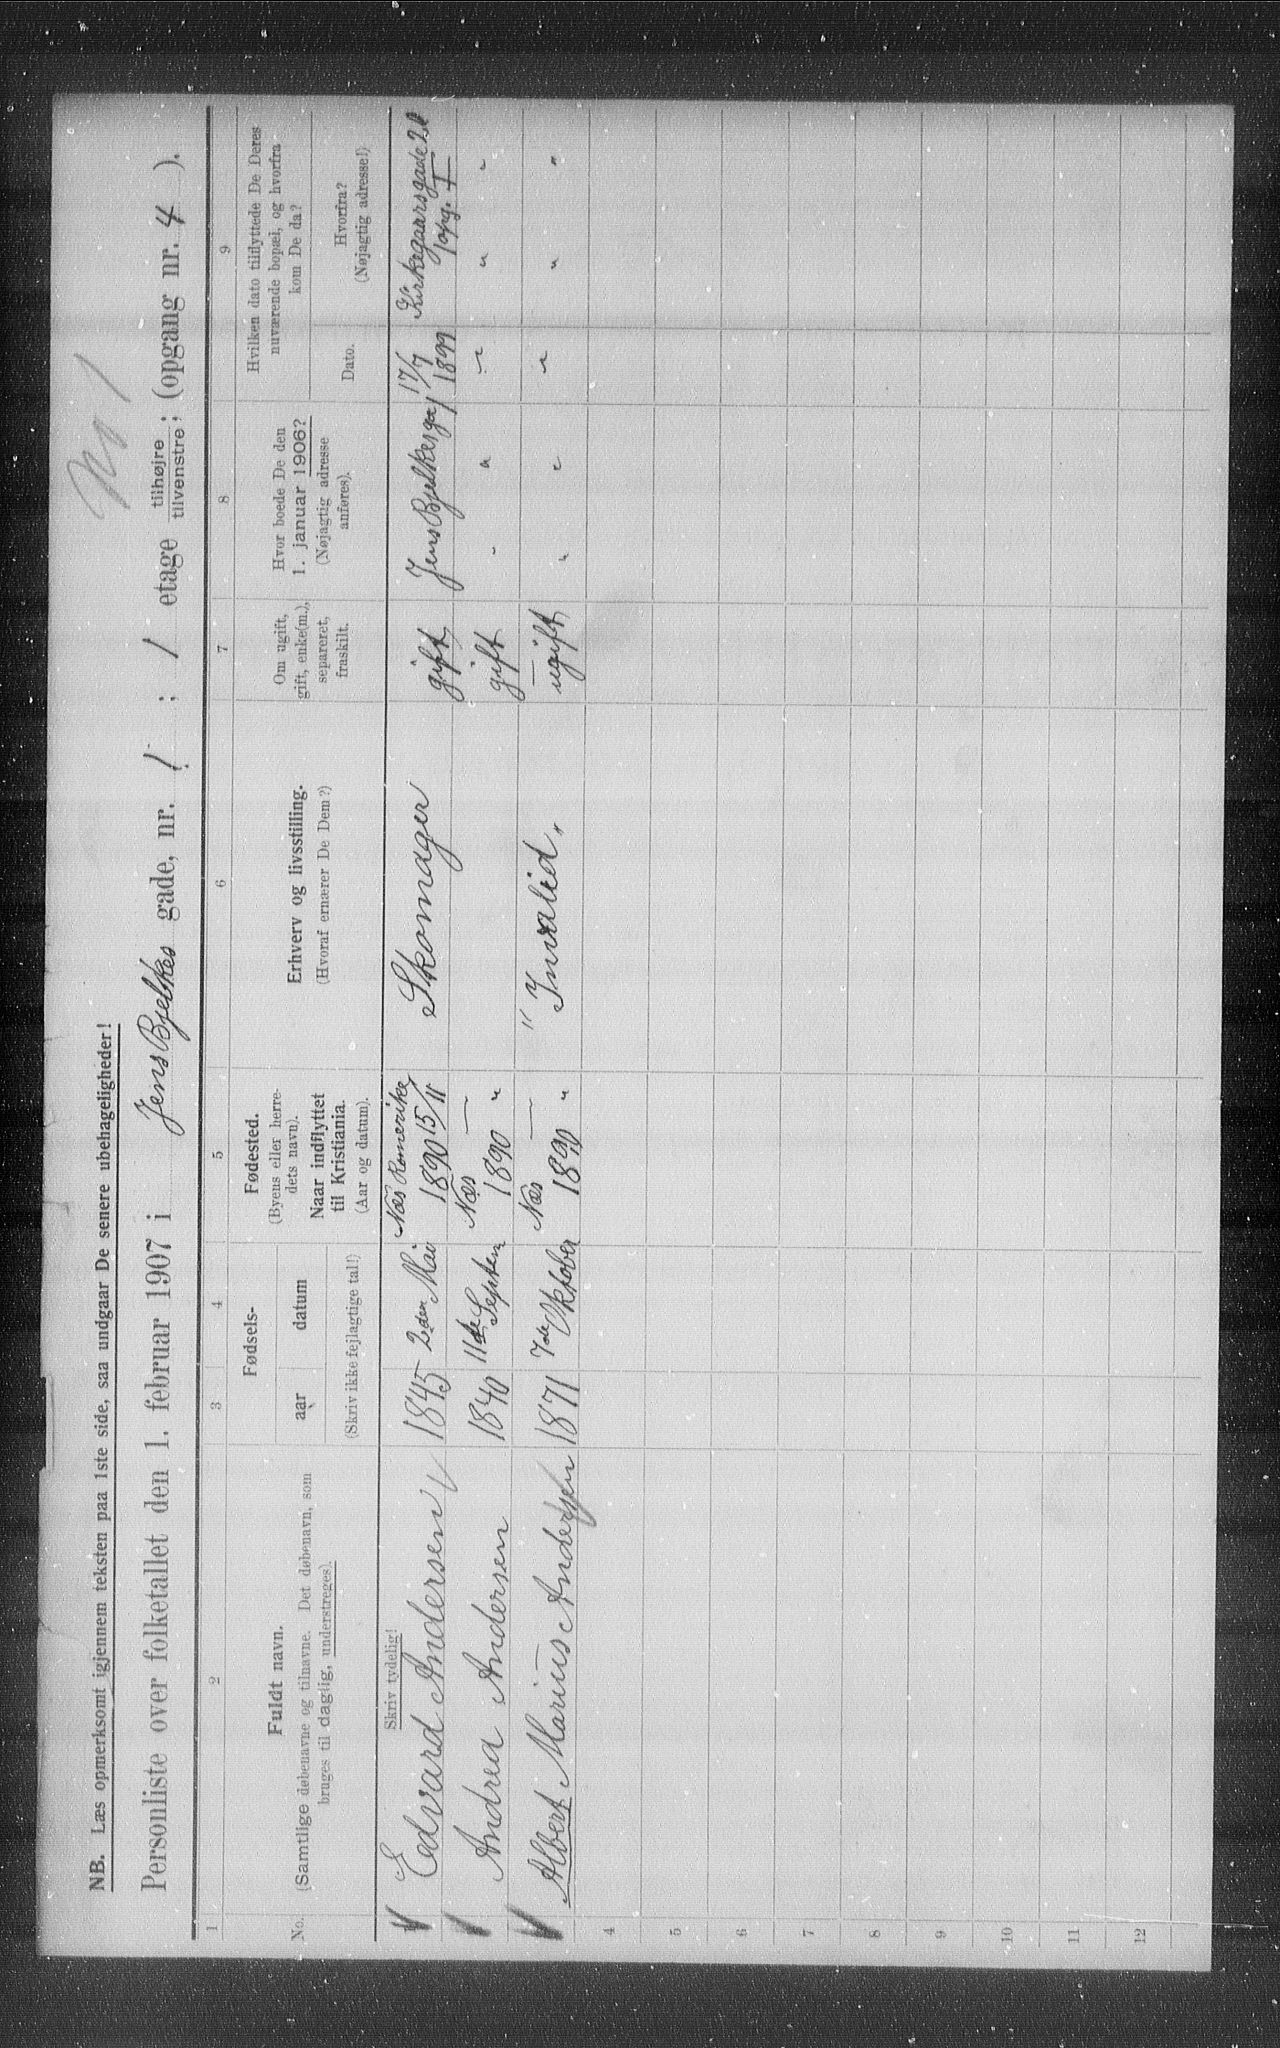 No 1
NB. Læs opmerksomt igjennem teksten paa 1ste side, saa undgaar De senere ubehageligheder!
Personliste over folketallet den 1. februar 1907 i Jens Bjelkes gade, nr. 1 ; 1 etage tilhøjre tilvenstre; (opgang nr. 4 ).
1 2 3 4 5 6 7 8 9
No.
Fuldt navn.
(Samtlige døbenavne og tilnavne. Det døbenavn, som
bruges til daglig, understreges).
Fødsels-
aar datum
(Skriv ikke fejlagtige tal!)
Fødested.
(Byens eller herre-
dets navn).
Naar indflyttet
til Kristiania.
(Aar og datum).
Erhverv og livsstilling.
(Hvoraf ernærer De Dem?)
Om ugift,
gift, enke(m.),
separeret,
fraskilt.
Hvor boede De den
1. januar 1906?
(Nøjagtig adresse
anføres).
Hvilken dato tilflyttede De Deres
nuværende bopæl, og hvorfra
kom De da?
Dato.
Hvorfra?
(Nøjagtig adresse!)
Skriv tydelig!
Edvard Andersen 1845 2den Mai Næs Romerike 1890 15/11 Skomager gift Jens Bjelkesga 1 17/7 1899 Kirkegaarsgade 2 Opg. I
Andrea Andersen 1840 11de Septem Næs — 1890 " gift " " " " "
Albert Marius Andersen 1871 7de Oktober Næs — 1890 " " Invalid " ugift " " " " "
4
5
6
7
8
9
10
11
12